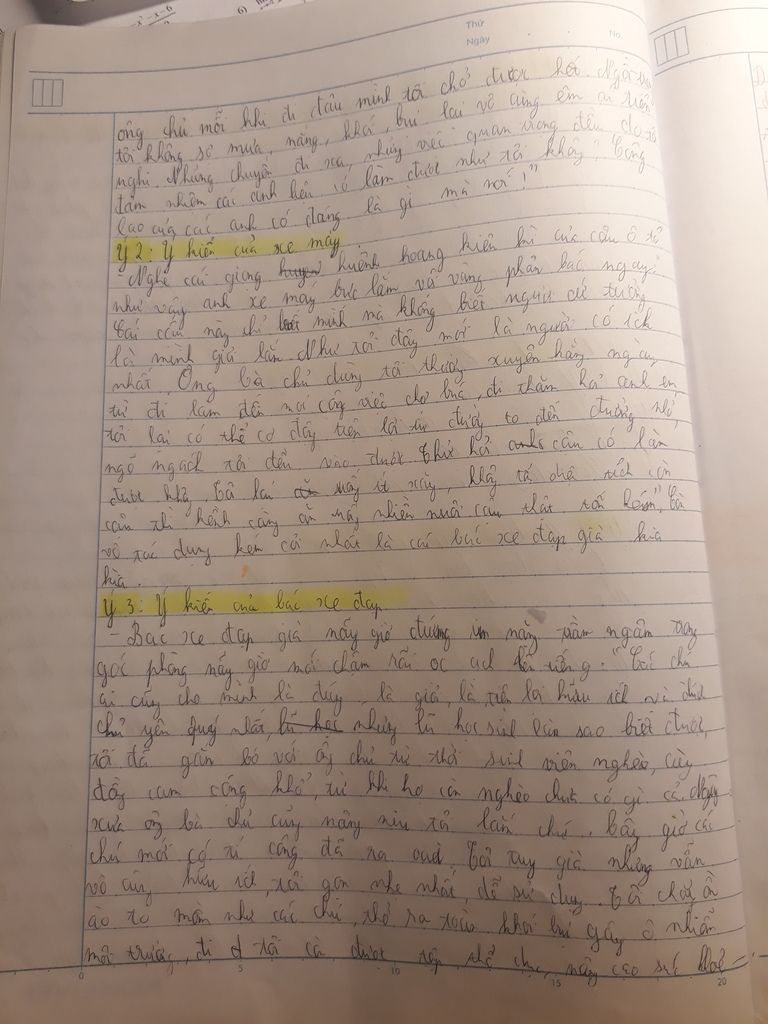 x²-x-6
6)
Thứ
Ngày
No.
ông chủ mỗi khi đi đâu mình tôi chở được hết
tôi không sợ mưa, nắng, khói, bụi lại vô cùng êm ái tiện
nghi. Những chuyến đi xa, những việc quan trọng đều do tôi
đảm nhiệm các anh liệu có làm được như tôi không, Công
lao của các anh có đáng là gì mà nói!"
Ý 2: Ý kiến của xe máy.
- Nghe cái giọng huênh hoang kiêu kì của cậu ô tô
như vậy anh xe máy bực lắm vội vàng phản bác ngay:
cái cậu này chỉ biết mình mà không biết người cứ tưởng
là mình giá lắm. Như tôi đây mới là người có ích
nhất. Ông bà chủ dùng tôi thường xuyên hằng ngày,
từ đi làm đến mọi công việc chợ búa, đi thăm hỏi anh em,
tôi lại có thể cơ động tiện lợi từ đường to đến đường nhỏ,
ngõ ngách tôi đều vào được. Thử hỏi cậu có làm
được không. Tôi lại máy ít xăng, còn
cậu thì kềnh càng nhiên tốn kém, Còn
về tác dụng kém cỏi nhất là cái bác xe đạp già kia
kìa.
Ý 3: Ý kiến của bác xe đạp
- Bác xe đạp già nãy giờ đứng im nặng trầm ngâm trong
góc phòng nãy giờ mới chậm rãi lên tiếng. "Các chú
ai cũng cho mình là đúng, là giỏi, là tiện lợi hữu ích và được
chủ yêu quý nhất, nhưng sao biết được,
tôi đã gắn bó với ông chủ từ thời sinh viên nghèo, cùng
đồng cam cộng khổ, từ khi họ còn nghèo chưa có gì cả. Ngày
xưa ông bà chủ cũng nâng niu tôi lắm chứ, bây giờ các
chú mới có tí công đã ra oai. Tôi tuy già nhưng vẫn
vô cùng hữu ích, tôi gọn nhẹ nhất, dễ sử dụng. Tôi chẳng ồn
ào to mồm như các chú, thở ra toàn khói bụi gây ô nhiễm
môi trường, đi tôi còn được tập thể dục, nâng cao sức khoẻ
0 5 10 15 20